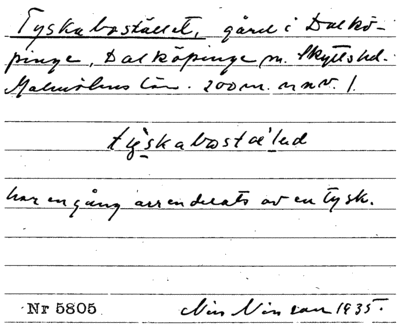 Tyskabostället, gård i Dalkö-
pinge, Dalköpinge sn. Skytts hd.
Malmöhus län. 200 m. nnv. 1.
tyskabostæled
har en gång arrenderats av en tysk.
Nr 5805 Nils Nilsson 1935.